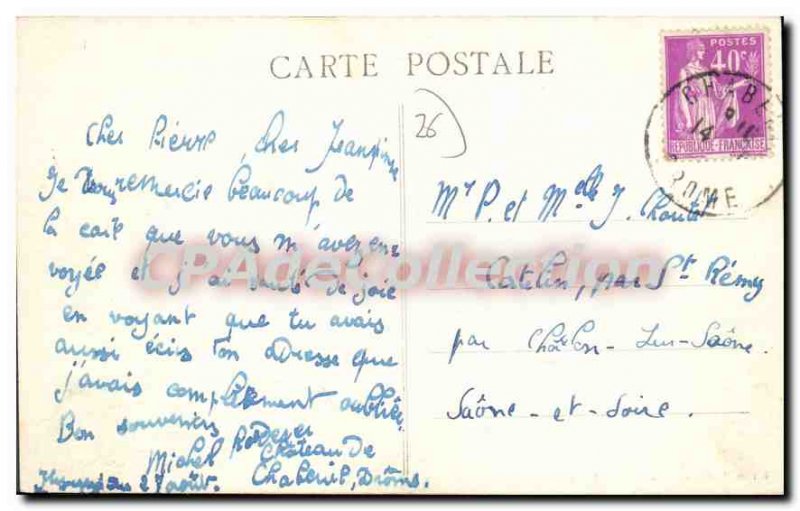 CARTE POSTALE
POSTES
40c
REPUBLIQUE FRANÇAISE
CHABE
14
DROME
26
Cher Pierre, cher Jeannine
Je vous remercie beaucoup de
la carte que vous m'avez en
voyée et j'ai sauté de joie
en voyant que tu avais
aussi écris ton adresse que
j'avais complètement oubliée.
Bon souvenirs
Michel
Château de
Chabeuil, Drôme
27 août.
Mr P. et Melle J.
par St Rémy
par Châlon-sur-Saône.
Saône-et-Loire.
CPAdeCollection